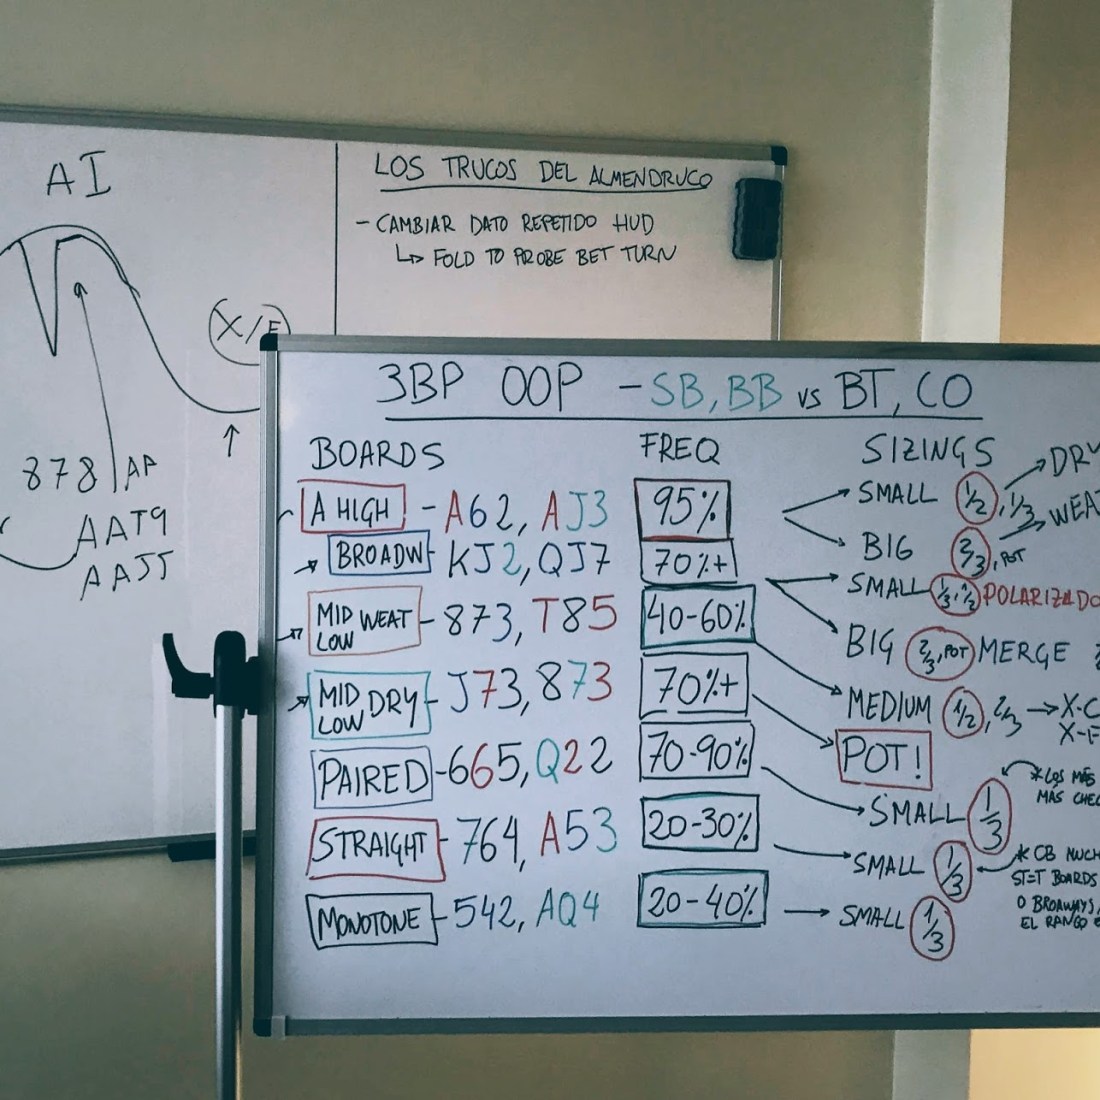 AI
X/F
878 AA
AAT9
AAJJ
LOS TRUCOS DEL ALMENDRUCO
- CAMBIAR DATO REPETIDO HUD
↳ FOLD TO PROBE BET TURN
3BP OOP - SB, BB vs BT, CO
BOARDS FREQ SIZINGS
A HIGH - A62, AJ3 95% SMALL 1/2, 1/3 → DRY
BIG 2/3, POT → WEAT
BROADW - KJ2, QJ7 70%+ SMALL 1/3, 1/2 POLARIZADO
BIG 2/3, POT MERGE
MID LOW WEAT - 873, T85 40-60% MEDIUM 1/2, 2/3 → X-C
X-F
MID LOW DRY - J73, 873 70%+ POT!
PAIRED - 665, Q22 70-90% SMALL 1/3
* LOS MÁS
MÁS CHEC
STRAIGHT - 764, A53 20-30% SMALL 1/3
* CB MUCH
ST=T BOARDS
O BROAWAYS,
EL RANGO E
MONOTONE - 542, AQ4 20-40% → SMALL 1/3